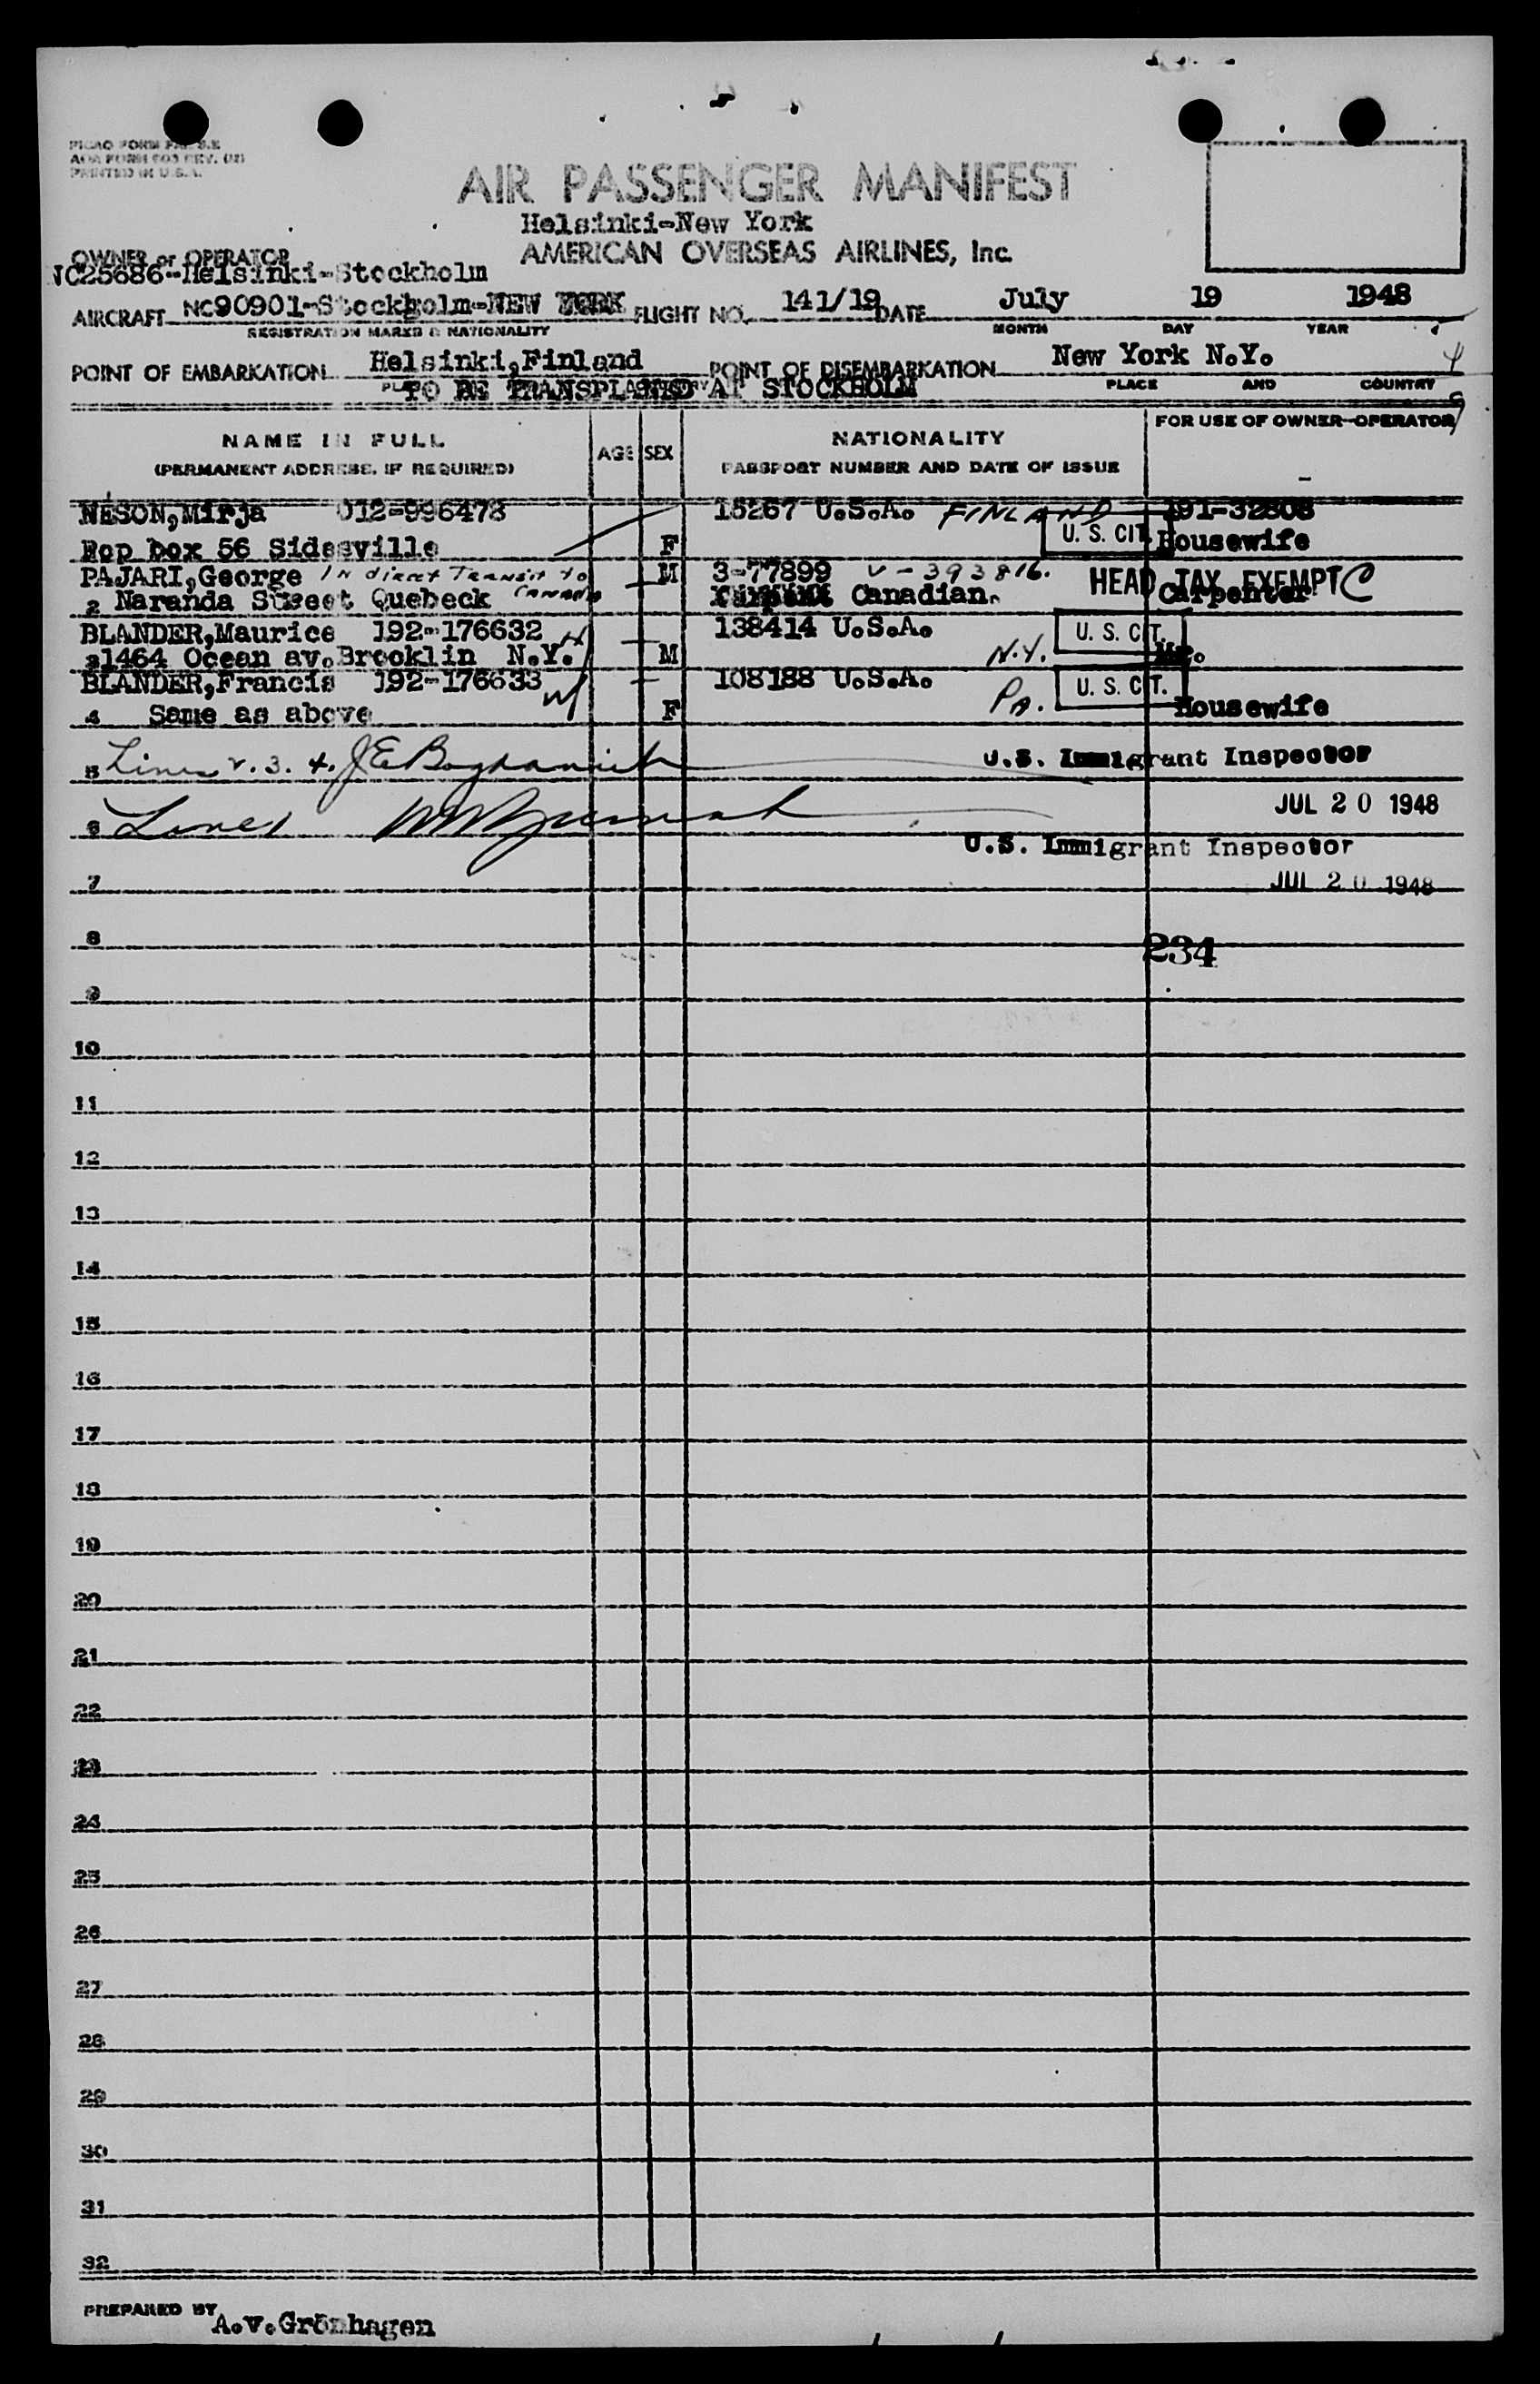 PICAO FORM
AOA FORM 603 REV.
PRINTED IN U.S.A.
AIR PASSENGER MANIFEST
Helsinki-New York
AMERICAN OVERSEAS AIRLINES, Inc.
OWNER or OPERATOR
NC25686-Helsinki-Stockholm
AIRCRAFT NC90901-Stockholm-NEW YORK FLIGHT NO. 141/19 DATE July 19 1948
REGISTRATION MARKS & NATIONALITY MONTH DAY YEAR
POINT OF EMBARKATION Helsinki,Finland POINT OF DISEMBARKATION New York N.Y.
TO BE TRANSPLANED AT STOCKHOLM PLACE AND COUNTRY
NAME IN FULL AGE SEX NATIONALITY FOR USE OF OWNER-OPERATOR
(PERMANENT ADDRESS, IF REQUIRED) PASSPORT NUMBER AND DATE OF ISSUE
NESON,Mirja 012-996473 15267 U.S.A. FINLAND 191-32808
Rop box 56 Sidesville F U. S. CIT. Housewife
PAJARI,George In direct Transit to Canada M 3-77899 V-393816. HEAD TAX EXEMPT C
2 Naranda Street Quebeck Canadian. Carpenter
BLANDER,Maurice 192-176632 138414 U.S.A. U. S. CIT.
3 1464 Ocean av.Brooklin N.Y. M N.Y. Mr.
BLANDER,Francis 192-176633 108188 U.S.A. U. S. CIT.
4 Same as above F Pa. Housewife
5 Lines 2. 3. 4. U.S. Immigrant Inspector
JUL 20 1948
6 Line 1
U.S. Immigrant Inspector
7 JUL 20 1948
8 234
9
10
11
12
13
14
15
16
17
18
19
20
21
22
23
24
25
26
27
28
29
30
31
32
PREPARED BY A.V.Grönhagen